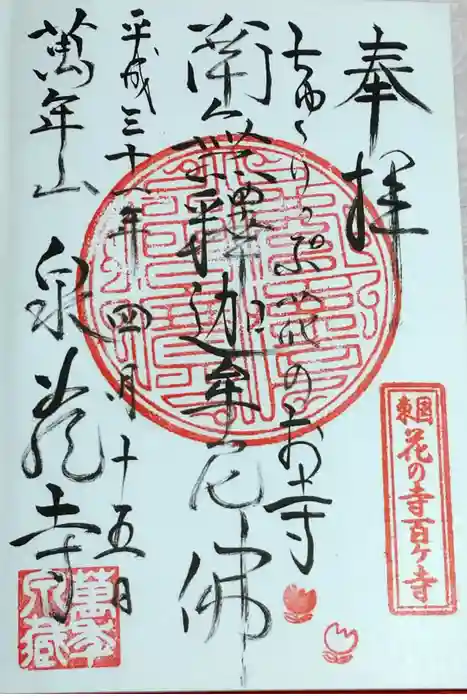 奉拝
ちゅうりっぷ花のお寺
南無釋迦牟尼佛
平成三十一年四月十五日
萬年山 泉寺
東國
花の寺百ヶ寺
萬年